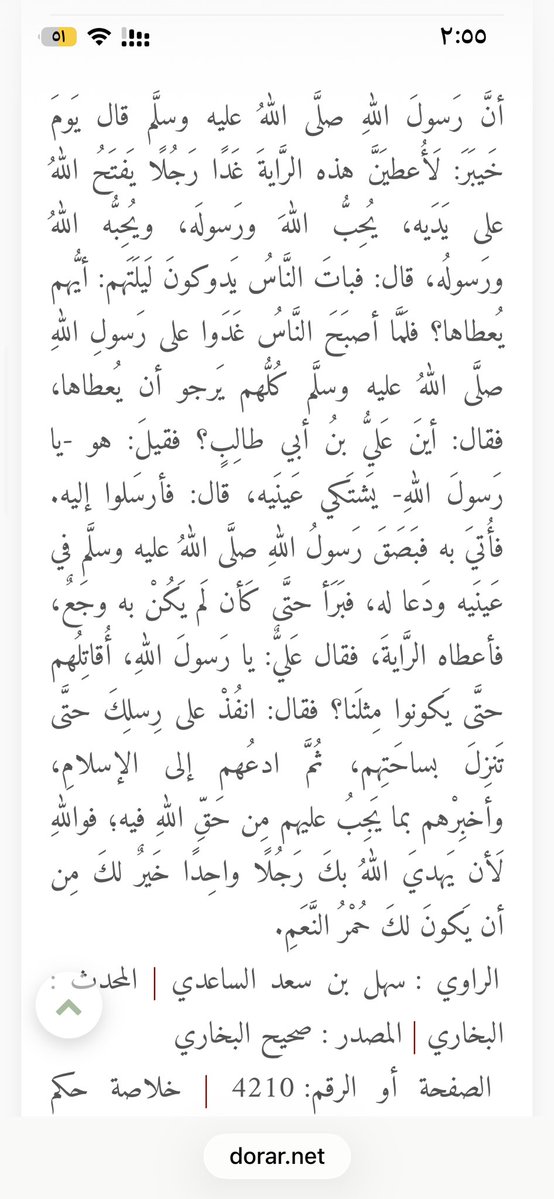 ٢:٥٥
٥١
أنَّ رَسولَ اللهِ صلَّى اللهُ عليه وسلَّم قال يَومَ
خَيبَرَ: لَأُعطيَنَّ هذه الرَّايةَ غَدًا رَجُلًا يَفتَحُ اللهُ
على يَدَيه، يُحِبُّ اللهَ ورَسولَه، ويُحِبُّه اللهُ
ورَسولُه، قال: فباتَ النَّاسُ يَدوكونَ لَيلَتَهم: أيُّهم
يُعطاها؟ فلَمَّا أصبَحَ النَّاسُ غَدَوا على رَسولِ اللهِ
صلَّى اللهُ عليه وسلَّم كُلُّهم يَرجو أن يُعطاها،
فقال: أينَ عَليُّ بنُ أبي طالِبٍ؟ فقيلَ: هو -يا
رَسولَ اللهِ- يَشتَكي عَينَيه، قال: فأرسَلوا إليه.
فأُتيَ به فبَصَقَ رَسولُ اللهِ صلَّى اللهُ عليه وسلَّم في
عَينَيه ودَعا له، فبَرَأ حتَّى كَأن لَم يَكُنْ به وجَعٌ،
فأعطاه الرَّايةَ، فقال عَليٌّ: يا رَسولَ اللهِ، أُقاتِلُهم
حتَّى يَكونوا مِثلَنا؟ فقال: انفُذْ على رِسلِكَ حتَّى
تَنزِلَ بساحَتِهم، ثُمَّ ادعُهم إلى الإسلامِ،
وأخبِرْهم بما يَجِبُ عليهم مِن حَقِّ اللهِ فيه؛ فواللهِ
لَأن يَهديَ اللهُ بكَ رَجُلًا واحِدًا خَيرٌ لكَ مِن
أن يَكونَ لكَ حُمْرُ النَّعَمِ.
الراوي : سهل بن سعد الساعدي | المحدث :
البخاري | المصدر : صحيح البخاري
الصفحة أو الرقم: 4210 | خلاصة حكم
dorar.net